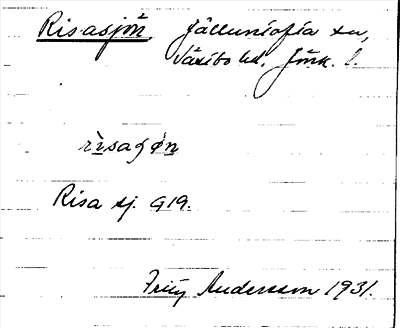 Risasjön Hällunsofia sn,
Västbo hd. Jönk. l.
rìsagøn
Risa sj. G19.
Fritz Andersson 1931.